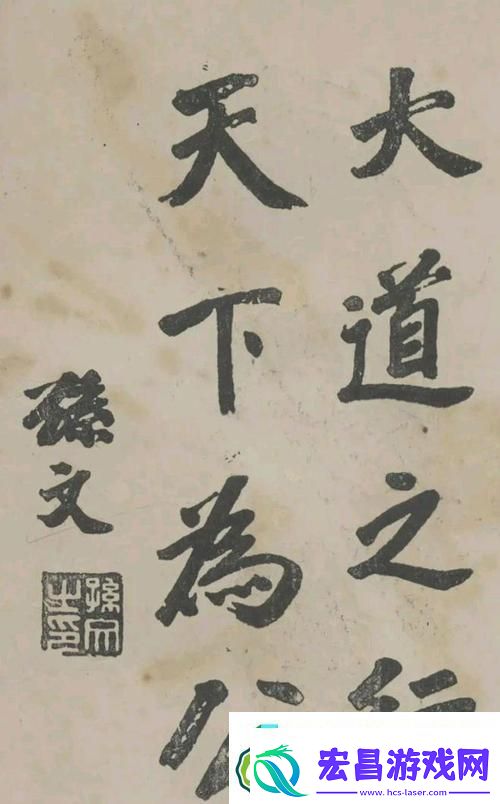 大道之行
天下為公
孫文
孫文之印
宏昌游戏网
www.hcs-laser.com